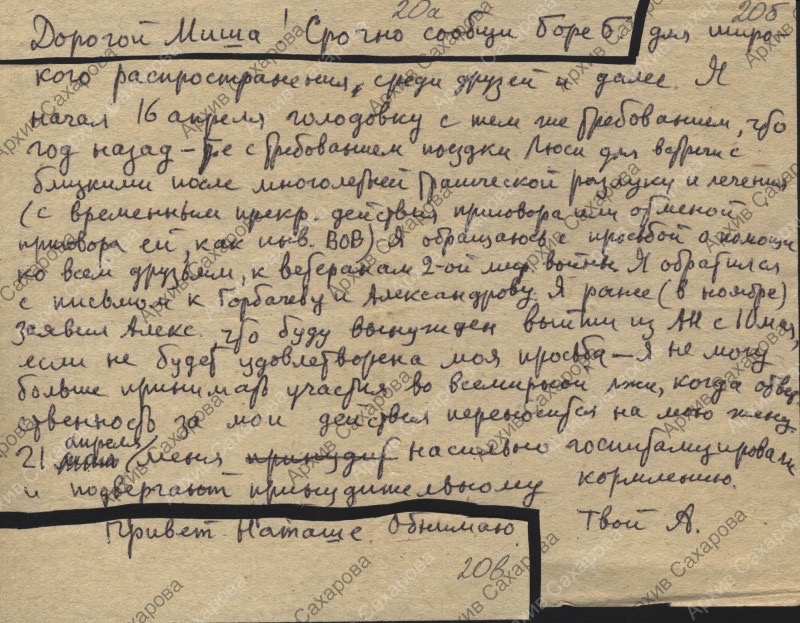 20а 20б
Дорогой Миша! Срочно сообщи Боре Б. для широ-
кого распространения, среди друзей и далее. Я
начал 16 апреля голодовку с тем же требованием, что
год назад – т.е с требованием поездки Люси для встречи с
близкими после многолетней трагической разлуки и лечения
(с временным прекр. действия приговора или отменой
приговора ей, как инв. ВОВ) Я обращаюсь с просьбой о помощи
ко всем друзьям, к ветеранам 2-ой мир. войны. Я обратился
с письмом к Горбачеву и Александрову. Я ранее (в ноябре)
заявил Алекс. что буду вынужден выйти из АН с 10 мая,
если не будет удовлетворена моя просьба – я не могу
больше принимать участия во всемирной лжи, когда ответ-
ственность за мои действия переносится на мою жену.
апреля
21 меня насильно госпитализировали
и подвергают принудительному кормлению.
Привет Наташе. Обнимаю Твой А.
20в
Архив Сахарова